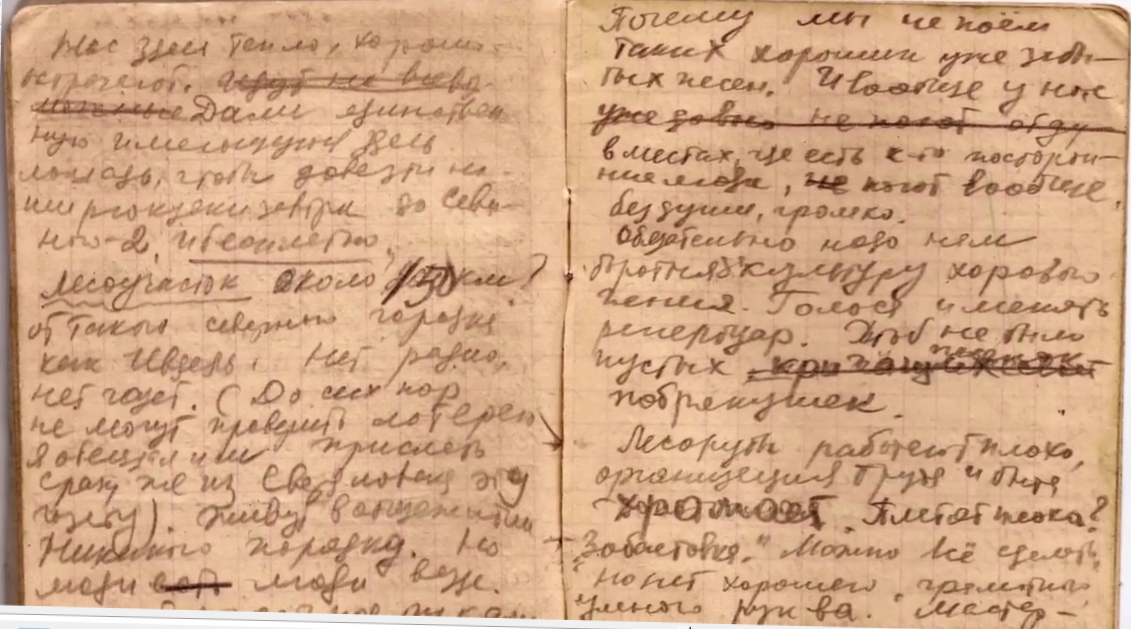 Нас здесь тепло, хорошо
встречают. идут на всево-
зможные Дали единствен-
ную имеющуюся здесь
лошадь, чтобы довезти на-
ши рюкзаки завтра до Севе-
ного-2. И бесплатно.
Лесоучасток около 150 км?
от такого северного городка
как Ивдель. Нет радио,
нет газет. (До сих пор
не могут проверить лотерею
я обещал им прислать
сразу же из Свердловска эту
газету). Живут в общежитии
Никакого порядка. Но
люди вот люди везде.
Почему мы не поём
таких хороших уже забы-
тых песен. И вообще у нас
уже давно не поют от ду
в местах, где есть к-то посторон-
ние люди, не поют вообще.
без души, громко.
Обязательно надо нам
бороться за культуру хорового
пения. Голоса и менять
репертуар. Чтоб не было
пустых песенок
побрякушек.
Лесорубы работают плохо,
организация труда и быта
хромает. Платят плохо?
"Забастовка." Можно всё сделать,
но нет хорошего, грамотного
умного рук-ва. Мастер-